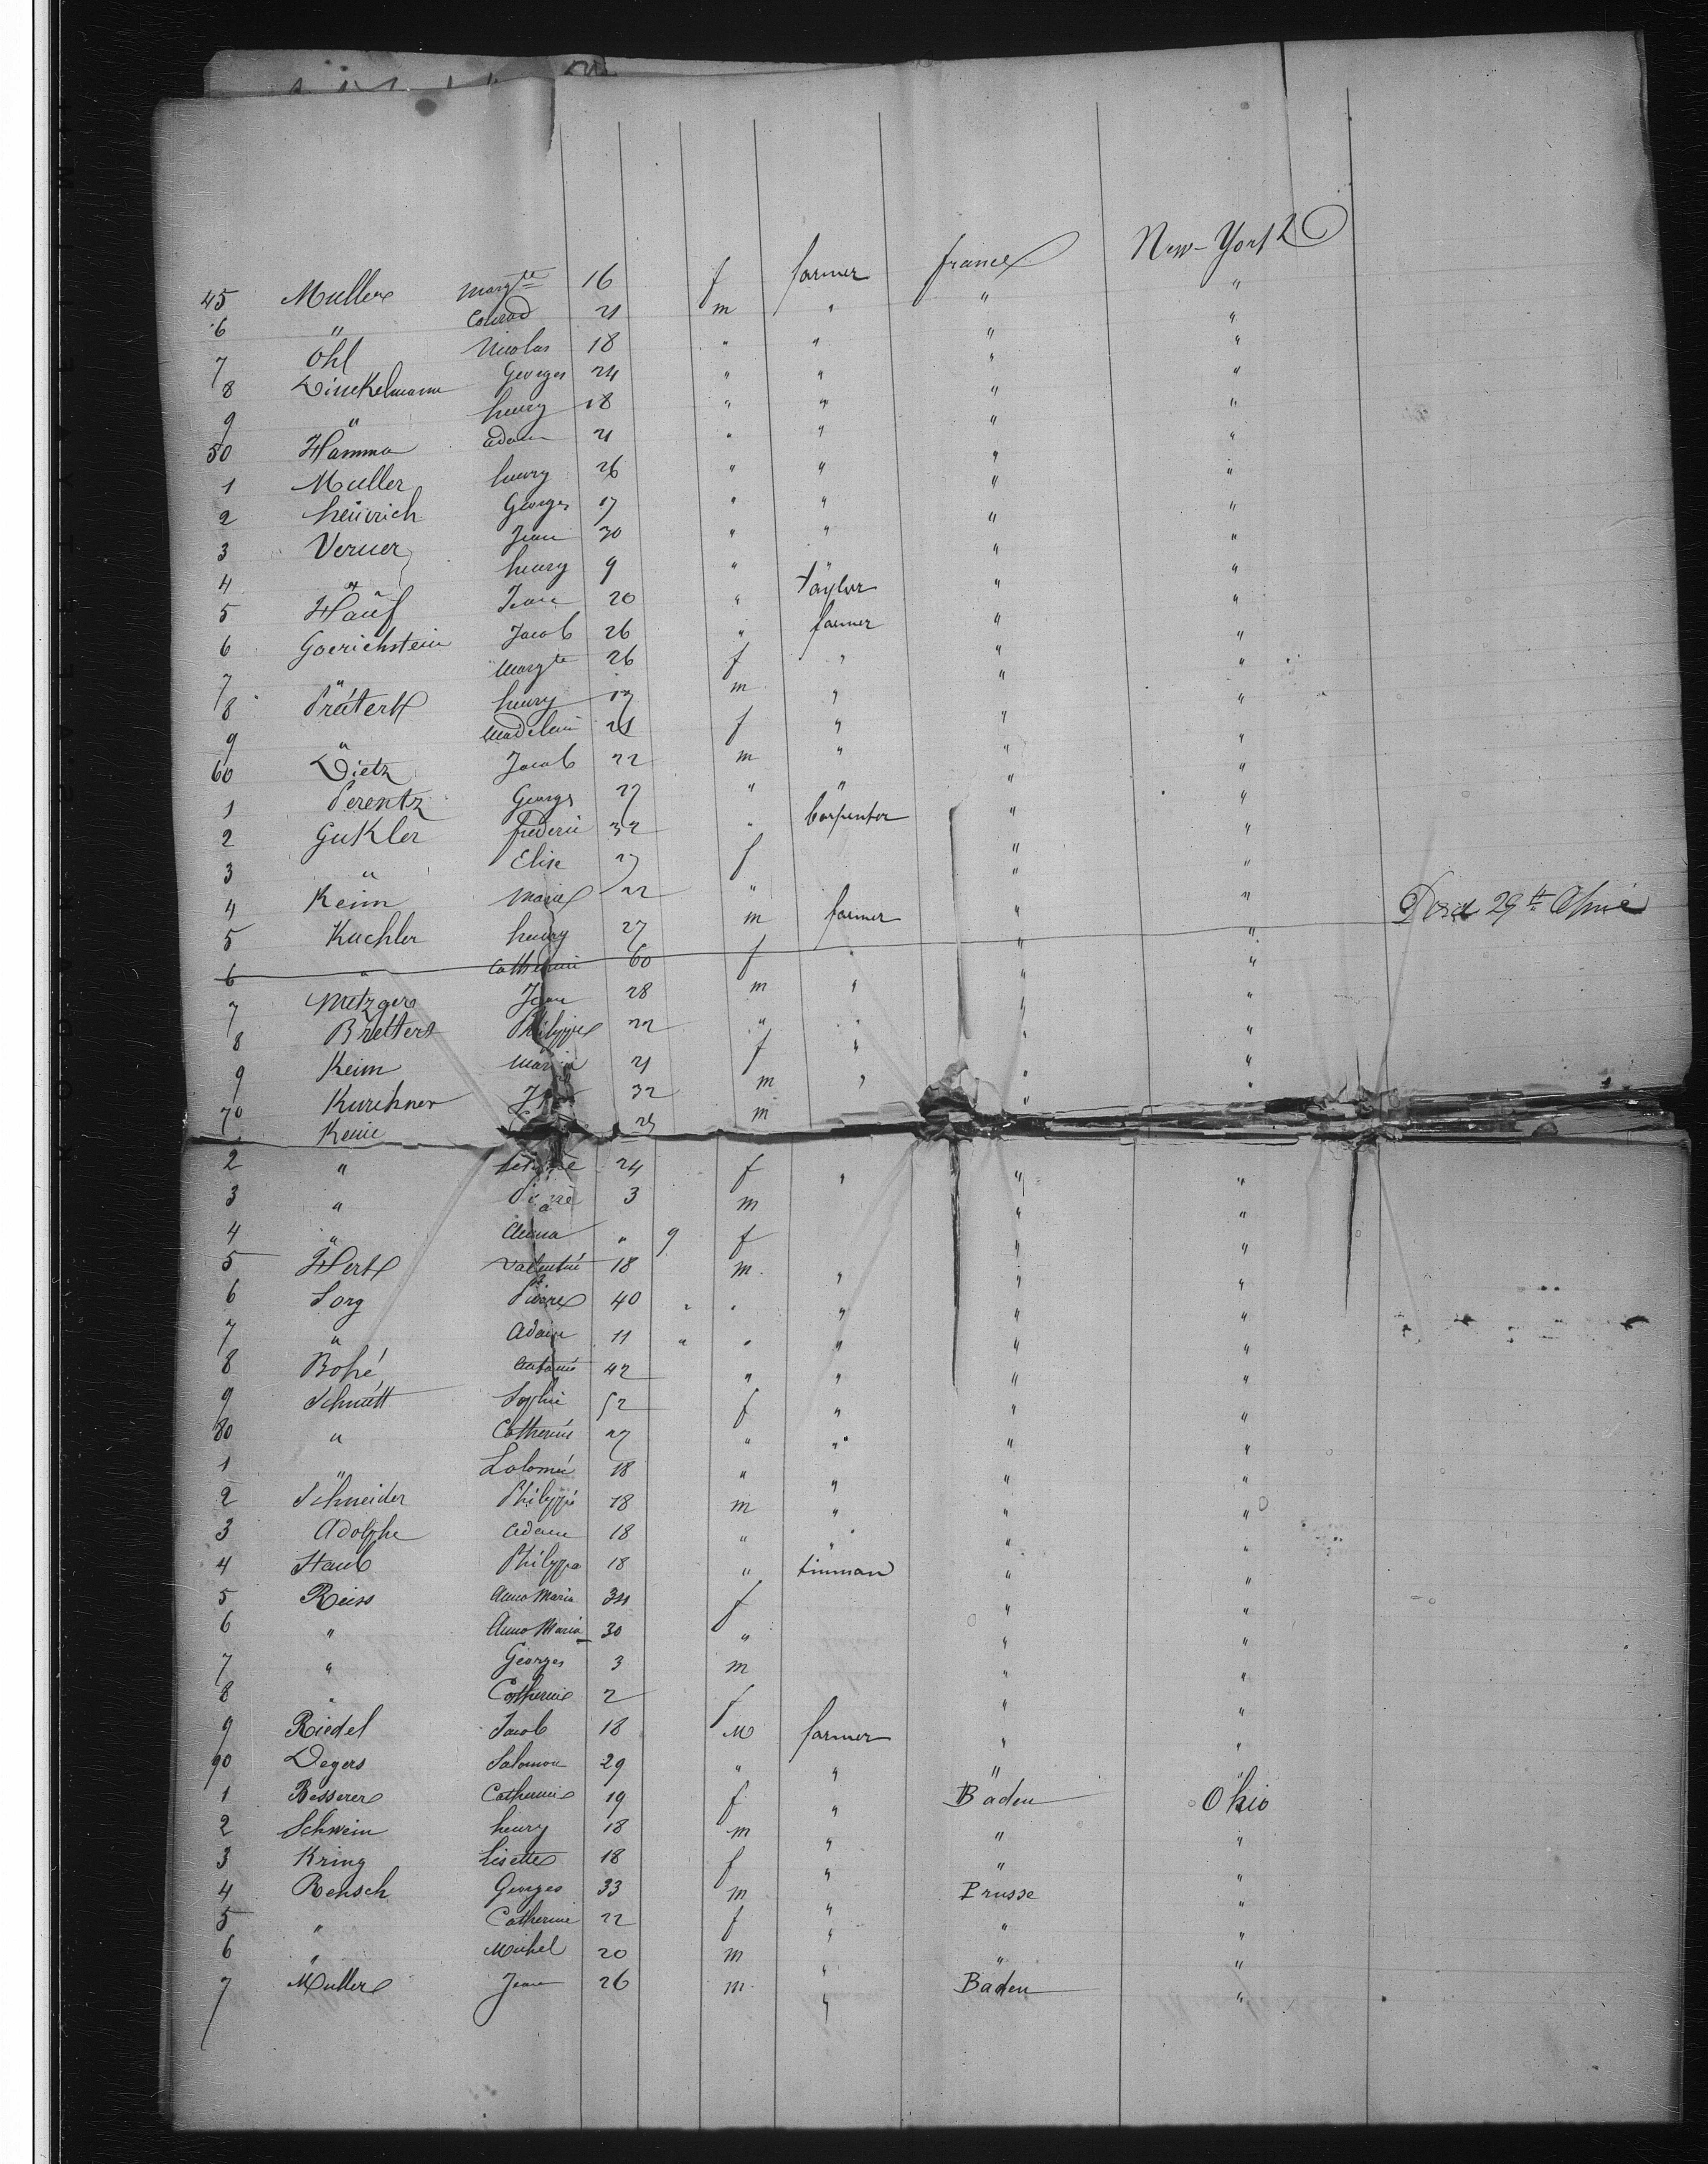 45 Muller Margte 16 f farmer france New-York
6 " Conrad 21 m " " "
7 Öhl Nicolas 18 " " " "
8 Dinckelmann Georges 24 " " " "
9 " henry 18 " " " "
50 Hamma adam 21 " " " "
1 Muller henry 26 " " " "
2 heinrich Georges 17 " " " "
3 Verner Jean 30 " " " "
4 " henry 9 " " " "
5 Hauf Jean 20 " taylor " "
6 Goerichstein Jacob 26 " farmer " "
7 " Margte 26 f " " "
8 henry 17 m " " "
9 " Madeleine 21 f " " "
60 Dietz Jacob 22 m " " "
1 Perentz Georges 27 " " " "
2 Gukler frederic 32 " Carpenter " "
3 " Elise 27 f " "
4 Keim Marie 22 " " "
5 Kuchler henry 27 m farmer " "
6 " Catherine 60 f " " " 29th
7 Metzger Jean 28 m " " "
8 Brettert Philippe 22 " " " "
9 Keim Maria 21 f " " "
70 Kurchner 32 m " " "
m
2 " 24 f " " "
3 " Pierre 3 m " "
4 " Anna " 9 f " "
5 Hert Valentin 18 m " " "
6 Sorg Pierre 40 " " " " "
7 " Adam 11 " " " " "
8 Bohé Antoine 42 " " " "
9 Schmitt Sophie 52 f " " "
80 " Catherine 27 " " " "
1 " Salomé 18 " " " "
2 Schneider Philippe 18 m " " "
3 Adolphe Adam 18 " " " "
4 Staub Philippe 18 " tinman " "
5 Reiss Anna Maria 34 f " "
6 " Anna Maria 30 " " "
7 " Georges 3 m " "
8 " Catherine 2 f " "
9 Riedel Jacob 18 M farmer " "
90 Degers Salomon 29 " " " "
1 Besserer Catherine 19 f " Baden Ohio
2 Schwein henry 18 m " " "
3 Kring Lisette 18 f " " "
4 Rensch Georges 33 m " Prusse "
5 " Catherine 22 f " " "
6 " Michel 20 m " " "
7 Muller Jean 26 m " Baden "